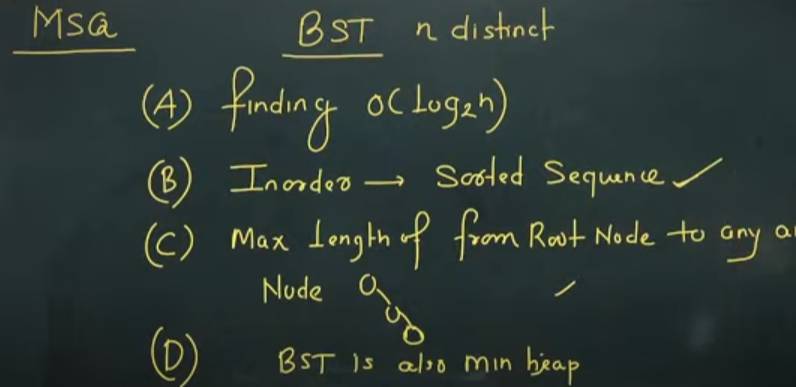 MSQ
BST n distinct
(A) finding O(Log₂n)
(B) Inorder → Sorted Sequence ✓
(C) Max Length of from Root Node to any a
Node
(D) BST is also min heap